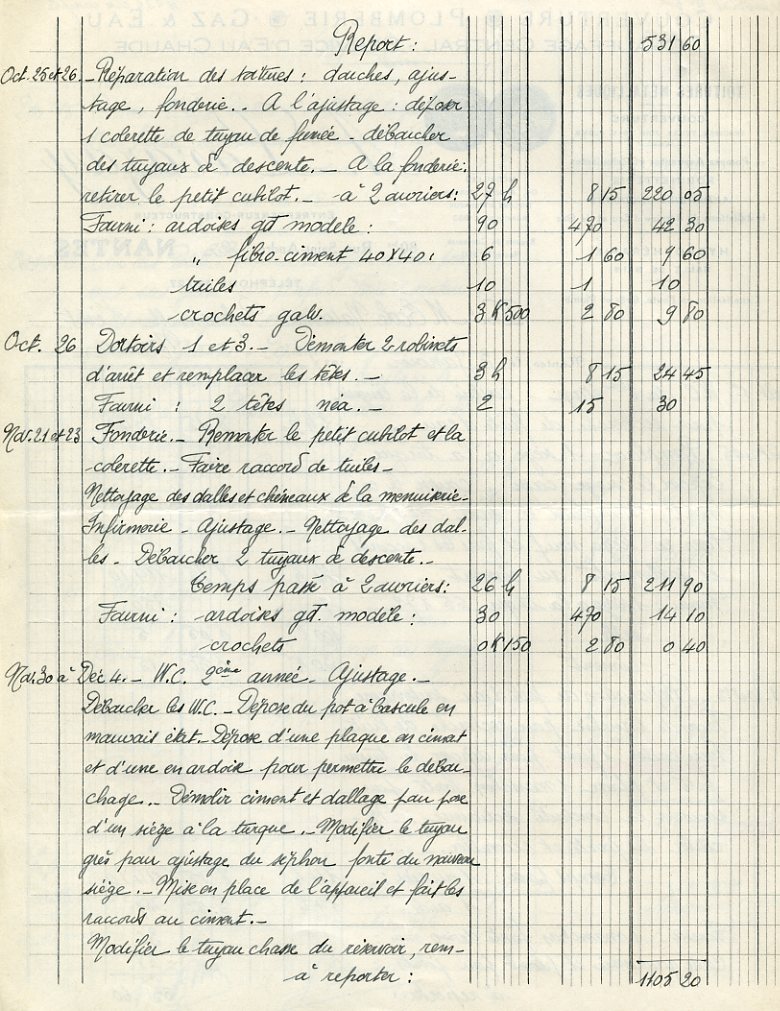 Report : 531 60
Oct. 25 et 26. - Réparation des toitures : douches, ajus-
tage, fonderie. - A l'ajustage : déposer
1 colerette de tuyau de fumée - déboucher
des tuyaux de descente. - A la fonderie :
retirer le petit cubilot. - à 2 ouvriers : 27 h 8 15 220 05
Fourni : ardoises gd modèle : 90 470 42 30
" fibro-ciment 40x40 : 6 1 60 9 60
tuiles 10 1 10
crochets galv. 3 K 500 2 80 9 80
Oct. 26 Dortoirs 1 et 3. - Démonter 2 robinets
d'arrêt et remplacer les têtes. - 3 h 8 15 24 45
Fourni : 2 têtes néa. - 2 15 30
Nov. 21 et 23 Fonderie. - Remonter le petit cubilot et la
colerette. - Faire raccord de tuiles -
Nettoyage des dalles et chéneaux de la menuiserie -
Infirmerie - Ajustage. - Nettoyage des dal-
les. - Déboucher 2 tuyaux de descente. -
Temps passé à 2 ouvriers : 26 h 8 15 211 90
Fourni : ardoises gd. modèle : 30 470 14 10
crochets 0 K 150 2 80 0 40
Nov. 30 à Déc 4. - W.C. 2ème année - Ajustage. -
Déboucher les W.C. - Dépose du pot à bascule en
mauvais état. - Dépose d'une plaque en ciment
et d'une en ardoise pour permettre le débou-
chage. - Démolir ciment et dallage pour pose
d'un siège à la turque. - Modifier le tuyau
grès pour ajustage du siphon fonte du nouveau
siège. - Mise en place de l'appareil et fait les
raccords au ciment. -
Modifier le tuyau chasse du réservoir, rem-
à reporter : 1105 20